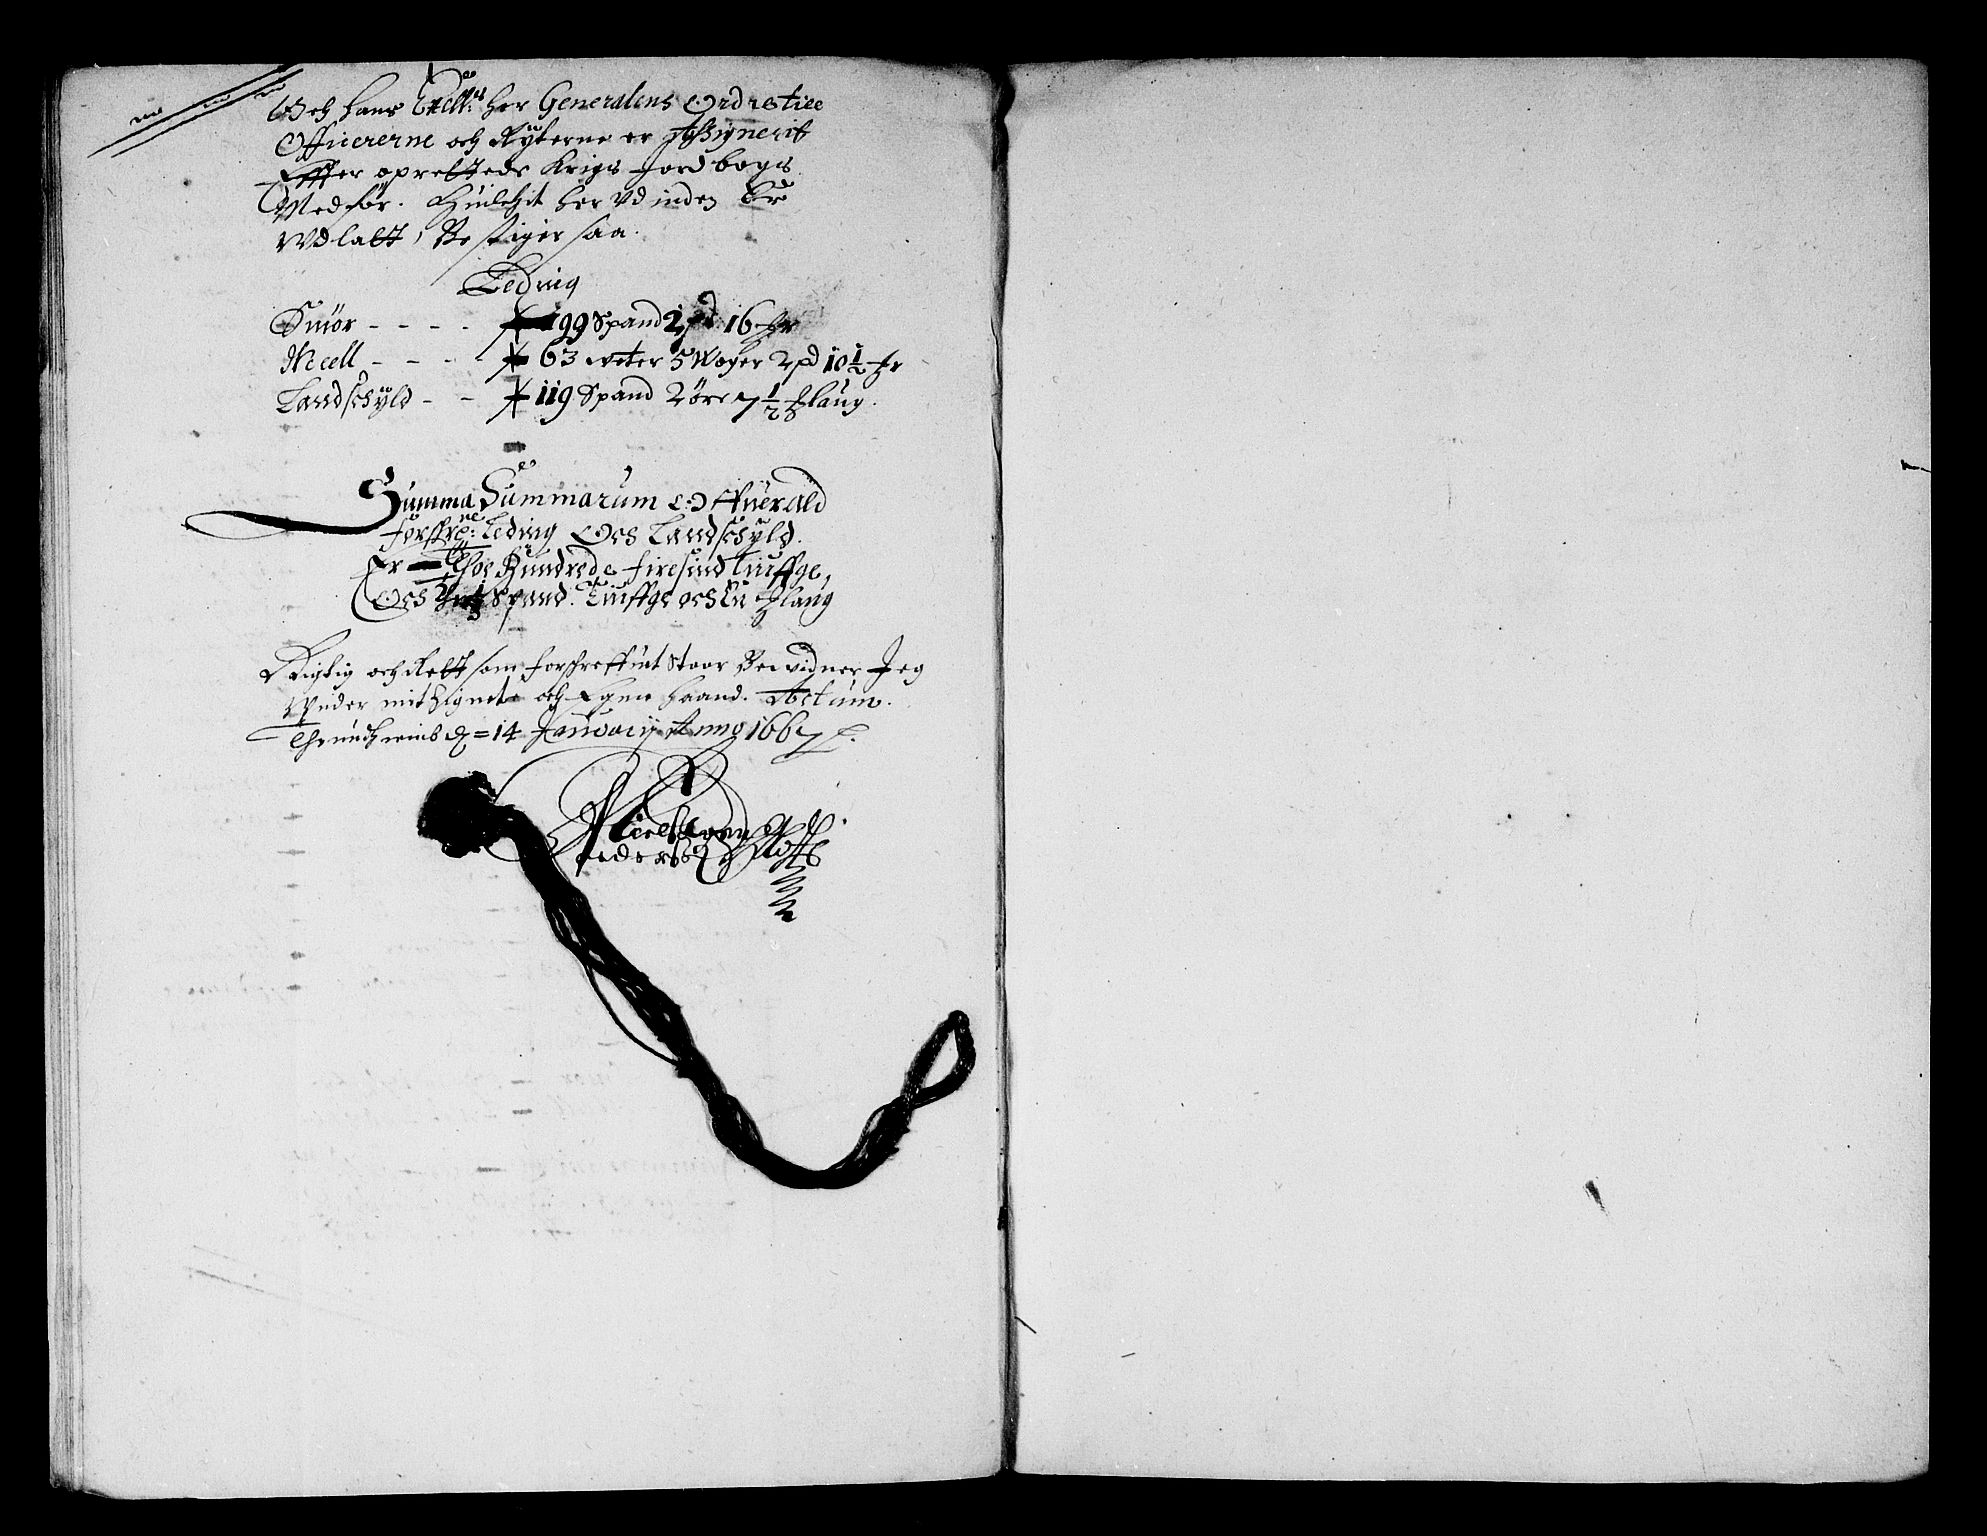 Och hans Excell:es her Generalens Ordre till
Officererne och Rÿterne er Assignerit
Effter oprettede Krigs Jordbogs
Medför. Huilchit her Vd inden Er
Vdlatt, Bestiger saa.
Leding
Smör - - - - 199 Spand 2 pd 16
Meell - - - - 63 weter 5 Woger 2 pd 10 1/2
Landschÿld - - 119 Spand 2 öre 7 1/28 Flaug.
Summa Summarum Offuerald
forschr:ne Leding Och Landschÿld.
Er Thoe Hundrede firesind tiuffge,
Och Spand. Tiuffge och En Flaug
Rigtig och Rett som forschreffuit Staar Beuidner Jeg
Vnder mit Zignete och Egen haand. Actum.
Thrundhiemb d = 14 Januarij Anno 1667
Niels
Pederss